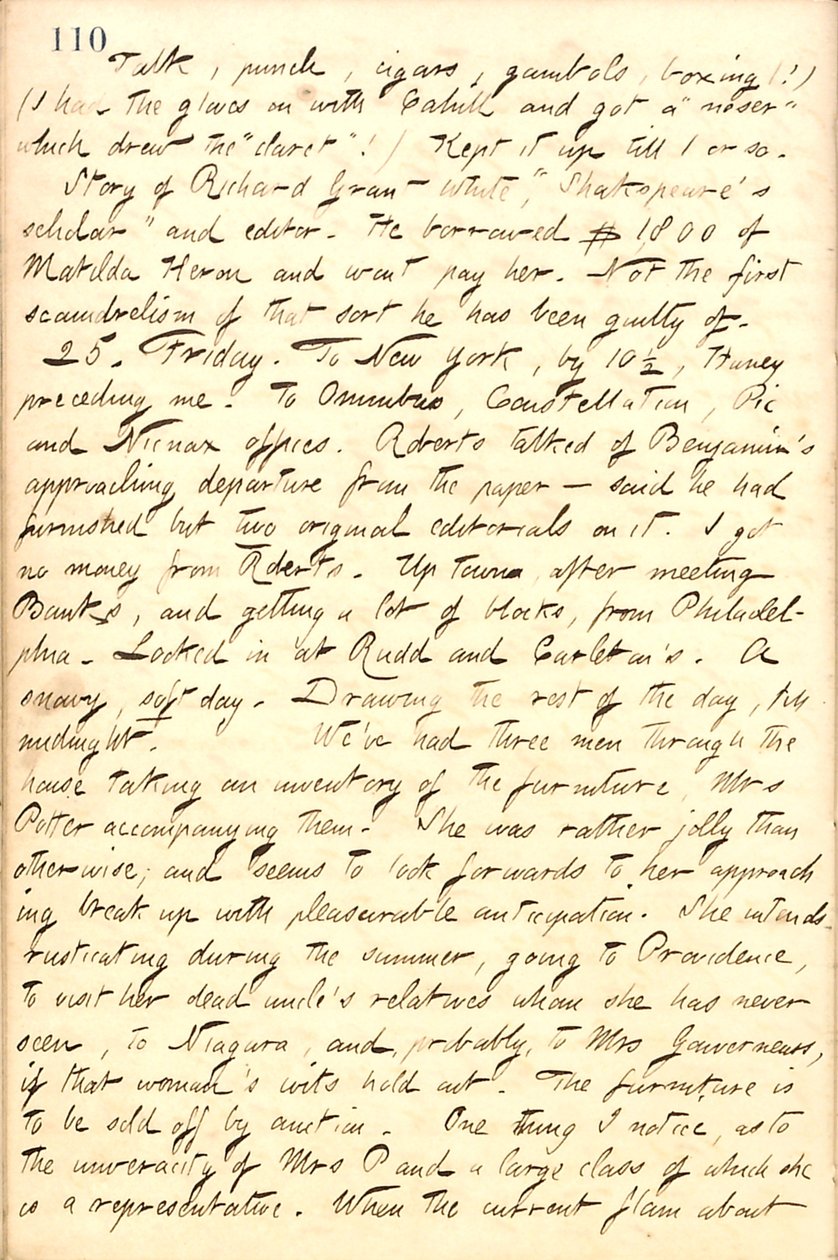 110
Talk, punch, cigars, gambols, boxing (!)
(I had the gloves on with Cahill and got a "noser"
which drew the "claret"!) Kept it up till 1 or so.
Story of Richard Grant White, "Shakspeare's
scholar" and editor. He borrowed $1,800 of
Matilda Heron and wont pay her. Not the first
scoundrelism of that sort he has been guilty of.
25. Friday. To New York, by 10 ½, Haney
preceding me. To Omnibus, Constellation, Pic
and Nicnax offices. Roberts talked of Benjamin's
approaching departure from the paper — said he had
furnished but two original editorials on it. I got
no money from Roberts. Up town, after meeting
Banks, and getting a lot of blocks, from Philadel-
phia. Looked in at Rudd and Carleton's. A
snowy, soft day. Drawing the rest of the day, till
midnight. We've had three men through the
house taking an inventory of the furniture, Mrs
Potter accompanying them. She was rather jolly than
otherwise, and seems to look forwards to her approach
ing break up with pleasurable anticipation. She intends
rusticating during the summer, going to Providence,
to visit her dead uncle's relatives whom she has never
seen, to Niagara, and, probably, to Mrs Gouverneurs,
if that woman's wits hold out. The furniture is
to be sold off by auction. One thing I notice, as to
the unveracity of Mrs P and a large class of which she
is a representative. When the current flam about